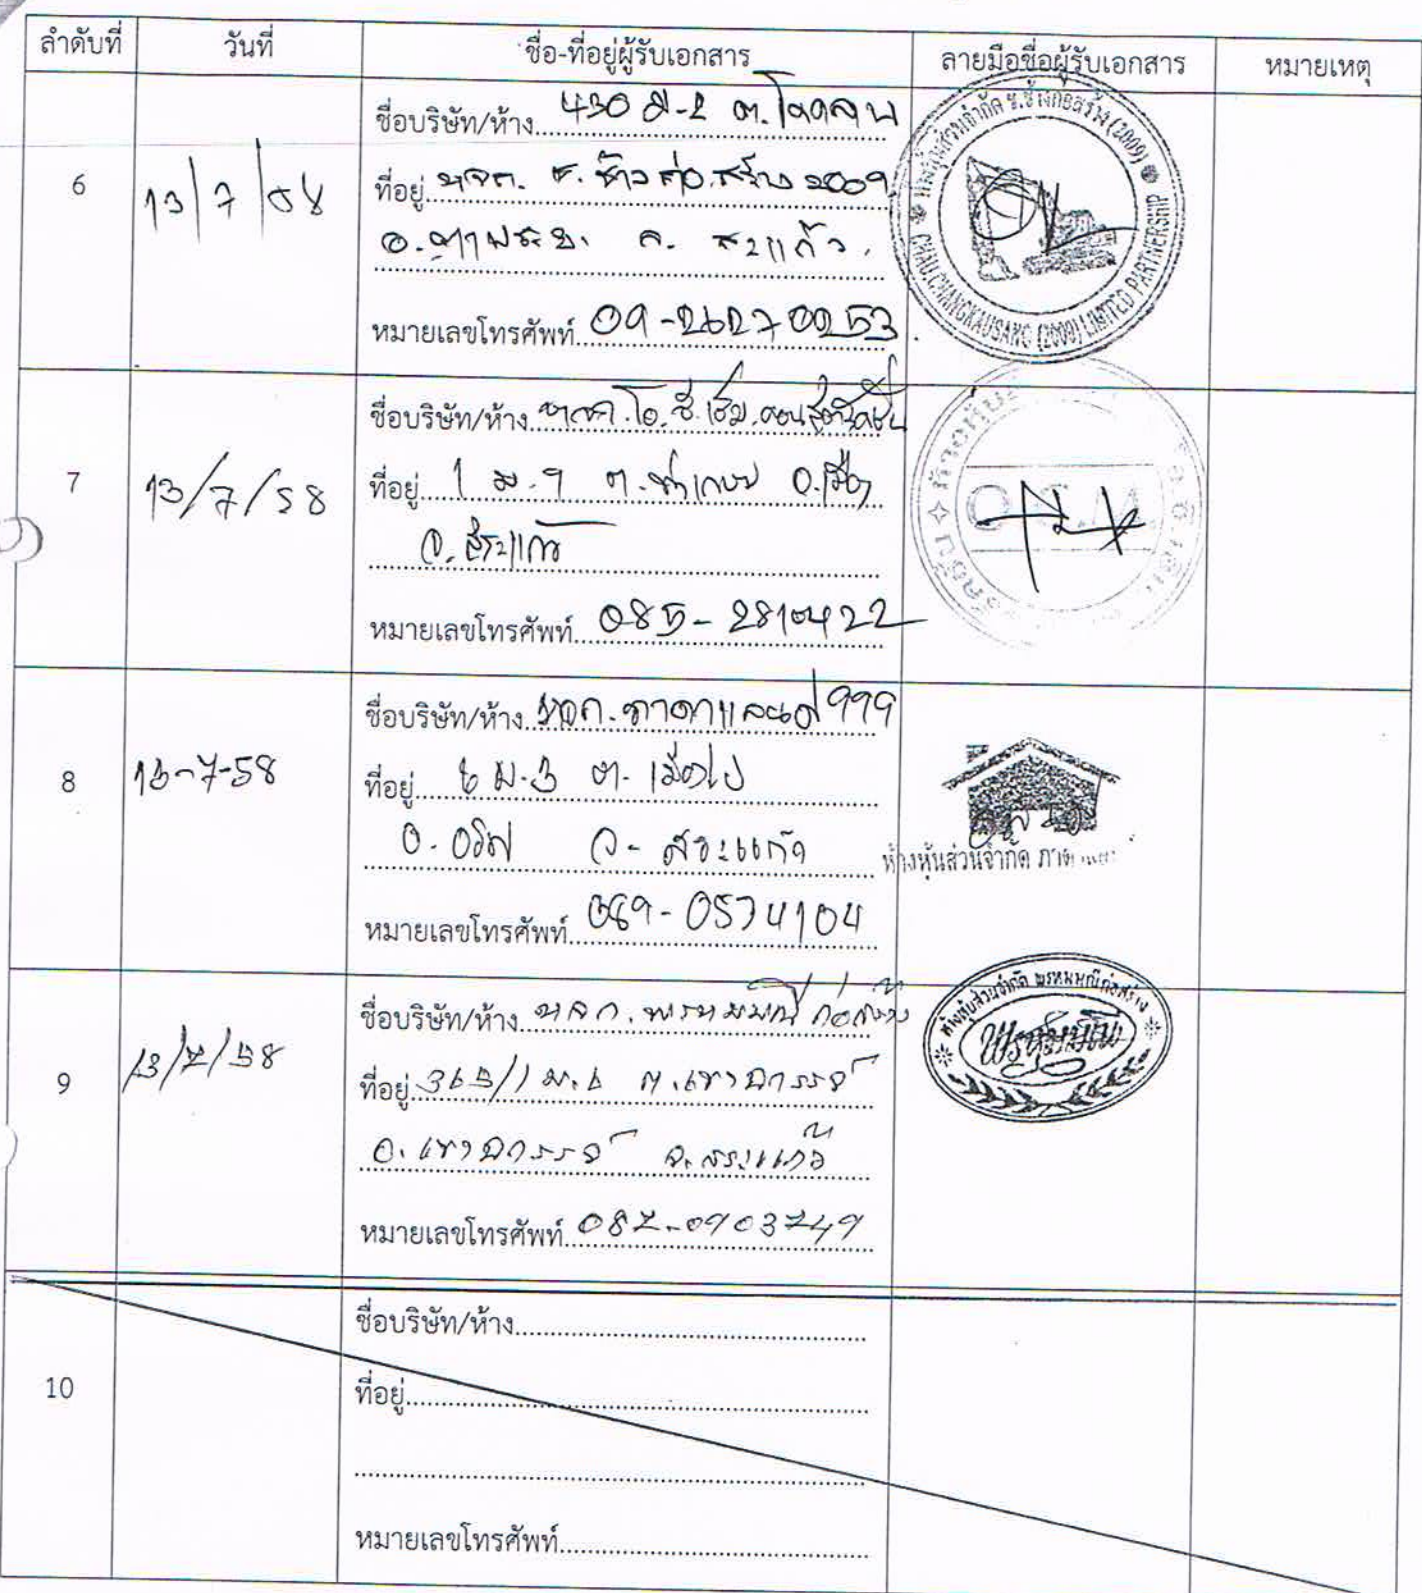 ลำดับที่ วันที่ ชื่อ-ที่อยู่ผู้รับเอกสาร ลายมือชื่อผู้รับเอกสาร หมายเหตุ
6 13/7/58
ชื่อบริษัท/ห้าง 430 ม-2 ต.โคคลาน
ที่อยู่ หจก. ช. ช้างก่อสร้าง 2009
อ.ตาพระยา จ. สระแก้ว
หมายเลขโทรศัพท์ 09-26270253
ห้างหุ้นส่วนจำกัด ช.ช้างก่อสร้าง (2009)
CHAU CHANGKAUSANG (2009) LIMITED PARTNERSHIP
7 13/7/58
ชื่อบริษัท/ห้าง หจก.โอ.ซี.เอ็ม.คอนสตรัคชั่น
ที่อยู่ 1 ม.9 ต.ท่าเกษม อ.เมือง
จ.สระแก้ว
หมายเลขโทรศัพท์ 085-2810422
8 13-7-58
ชื่อบริษัท/ห้าง หจก. 999
ที่อยู่ 6 ม.3 ต. เมืองไผ่
อ. อรัญ จ. สระแก้ว
หมายเลขโทรศัพท์ 089-0534104
ห้างหุ้นส่วนจำกัด
9 13/7/58
ชื่อบริษัท/ห้าง หจก. พรหมมณีก่อสร้าง
ที่อยู่ 365/1 ม.6 ต.เขาฉกรรจ์
อ.เขาฉกรรจ์ จ.สระแก้ว
หมายเลขโทรศัพท์ 087-0903749
ห้างหุ้นส่วนจำกัด พรหมมณีก่อสร้าง
10
ชื่อบริษัท/ห้าง
ที่อยู่
หมายเลขโทรศัพท์